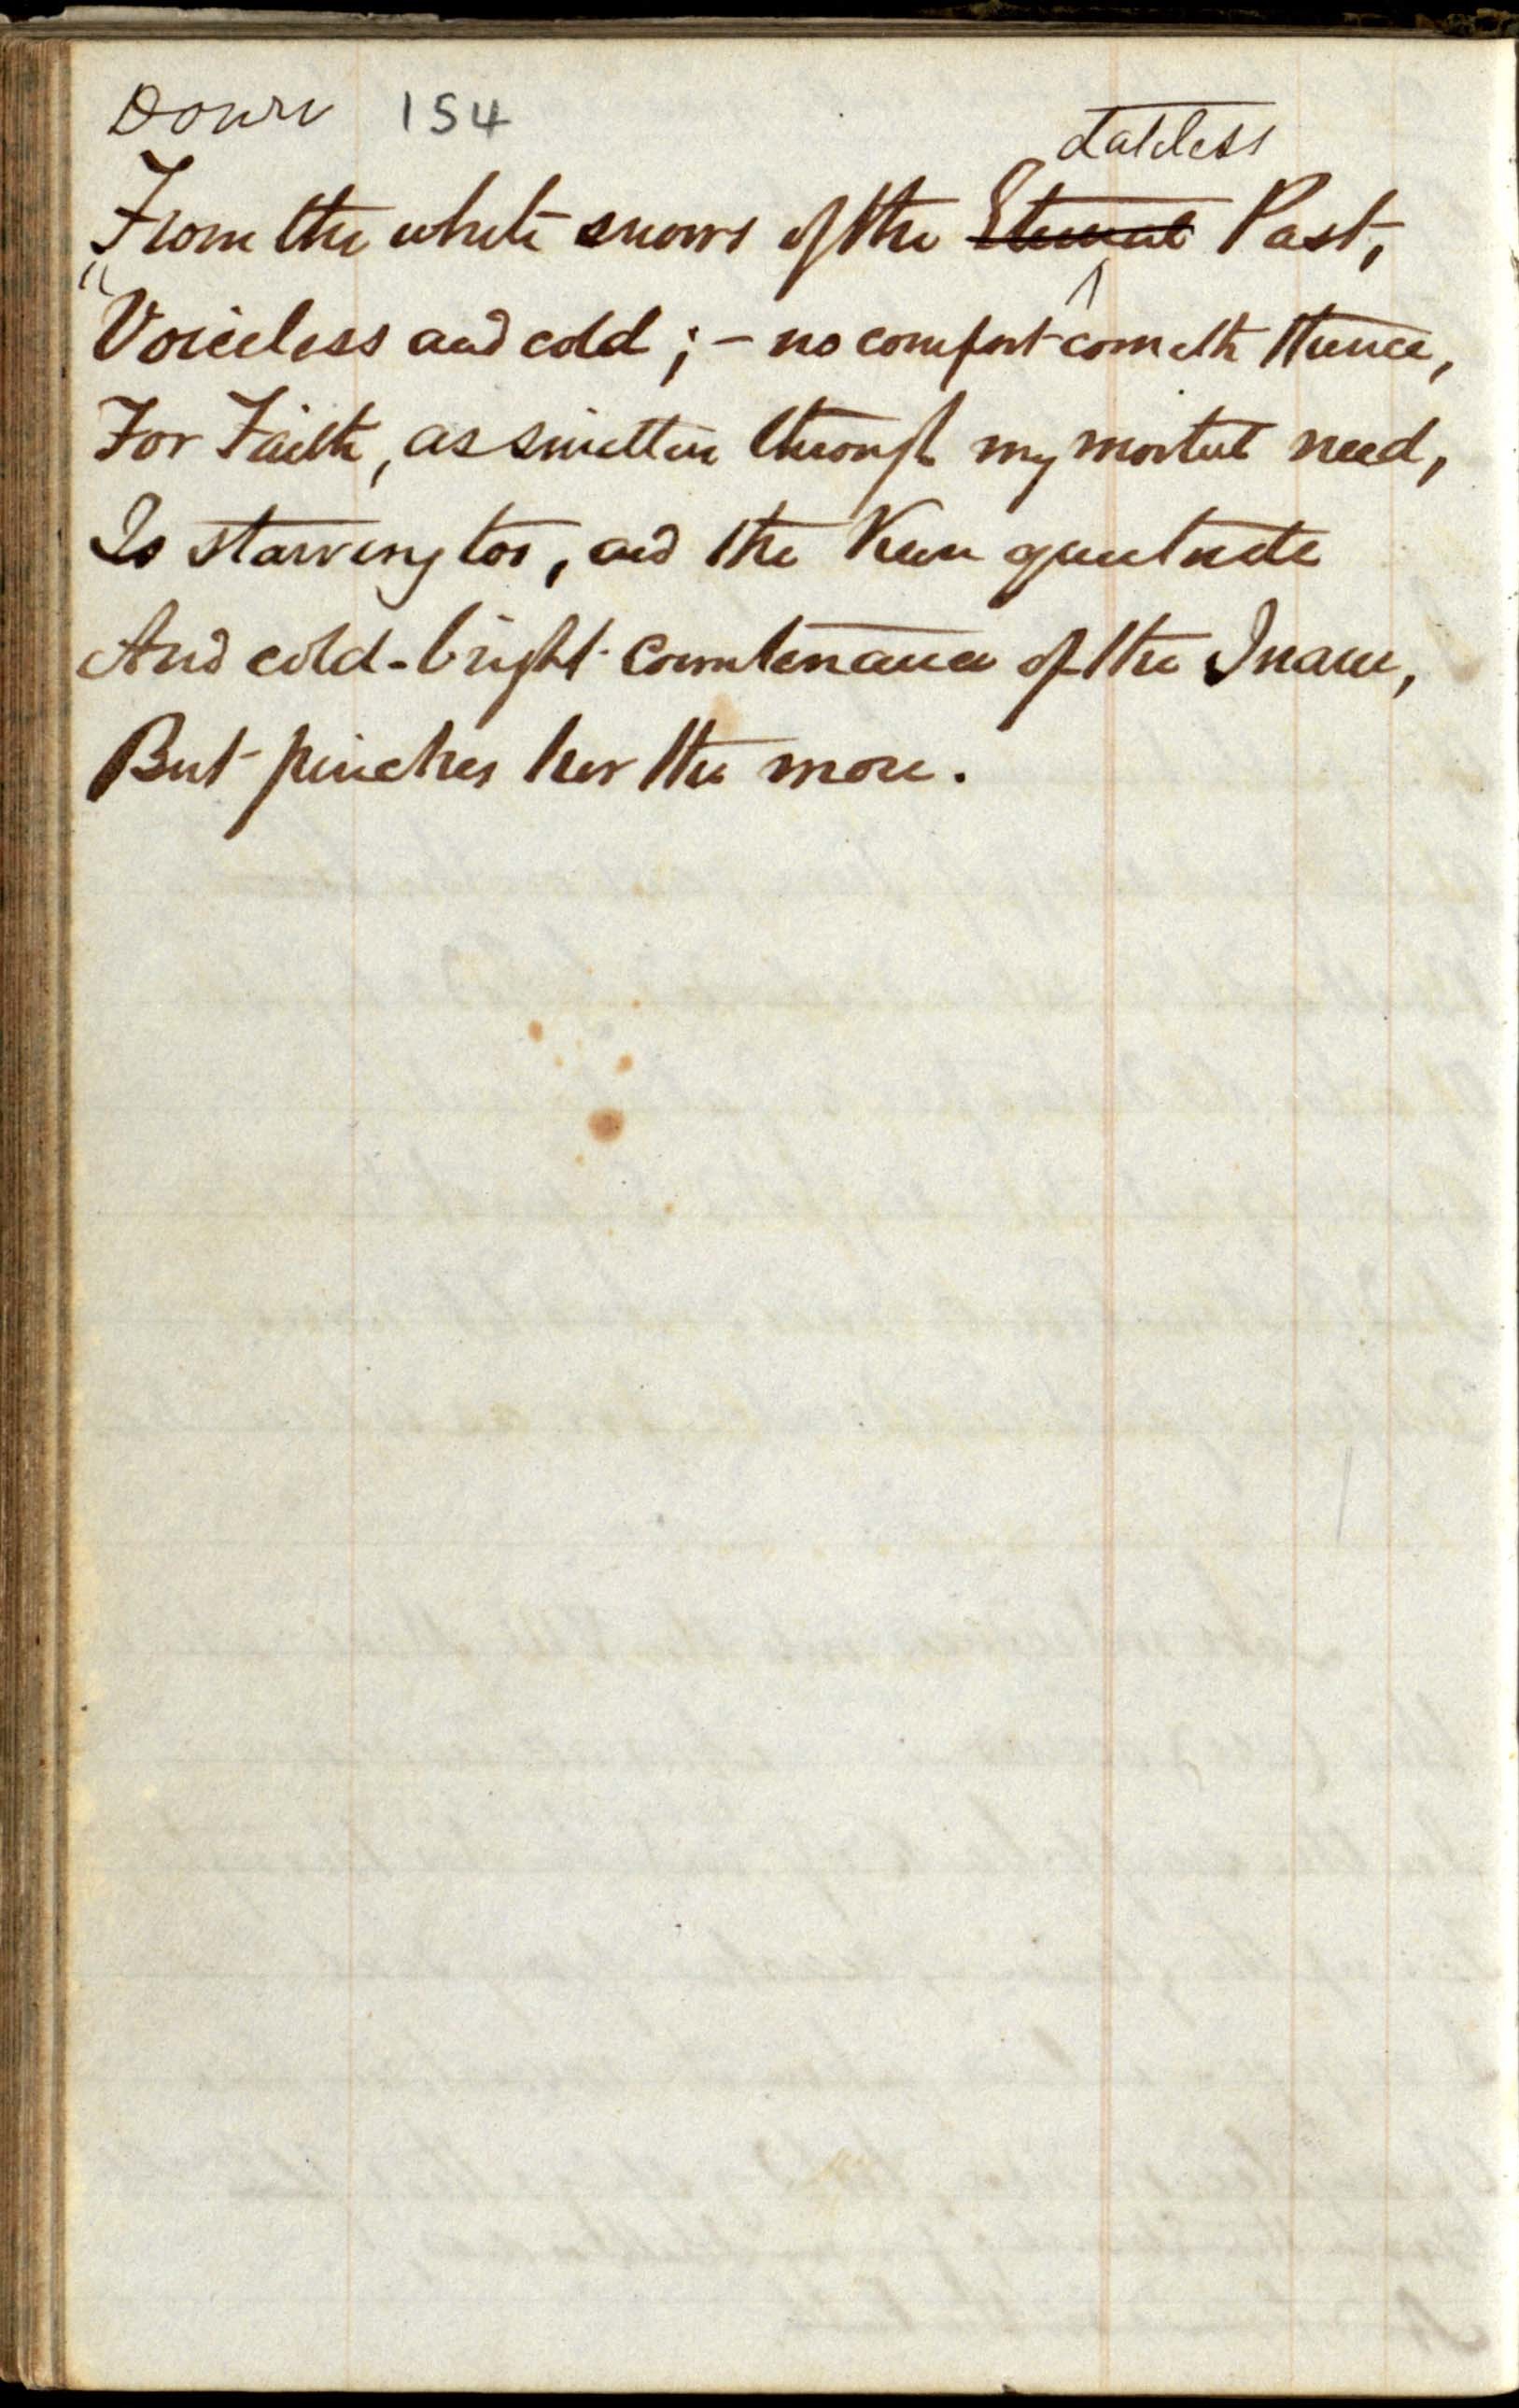 Down 154
dateless
From the white snows of the Eternal Past,
Voiceless and cold; – no comfort cometh thence,
For Faith, as smitten through my mortal need,
Is starving too, and the keen
And cold-bright countenance of the Inane,
But pinches her the more.